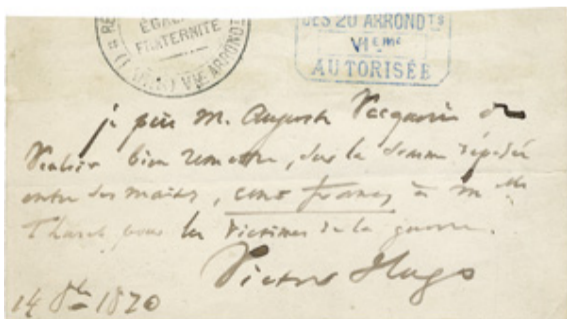 ÉGAL
FRATERNITÉ
VIe ARRONDt
DES 20 ARRONDTS
VIEME
AUTORISÉE
je prie M. Auguste Vacquerie de
vouloir bien remettre, sur la somme déposée
entre ses mains, cent francs à Mlle
pour les victimes de la guerre.
Victor Hugo
14 8bre 1870